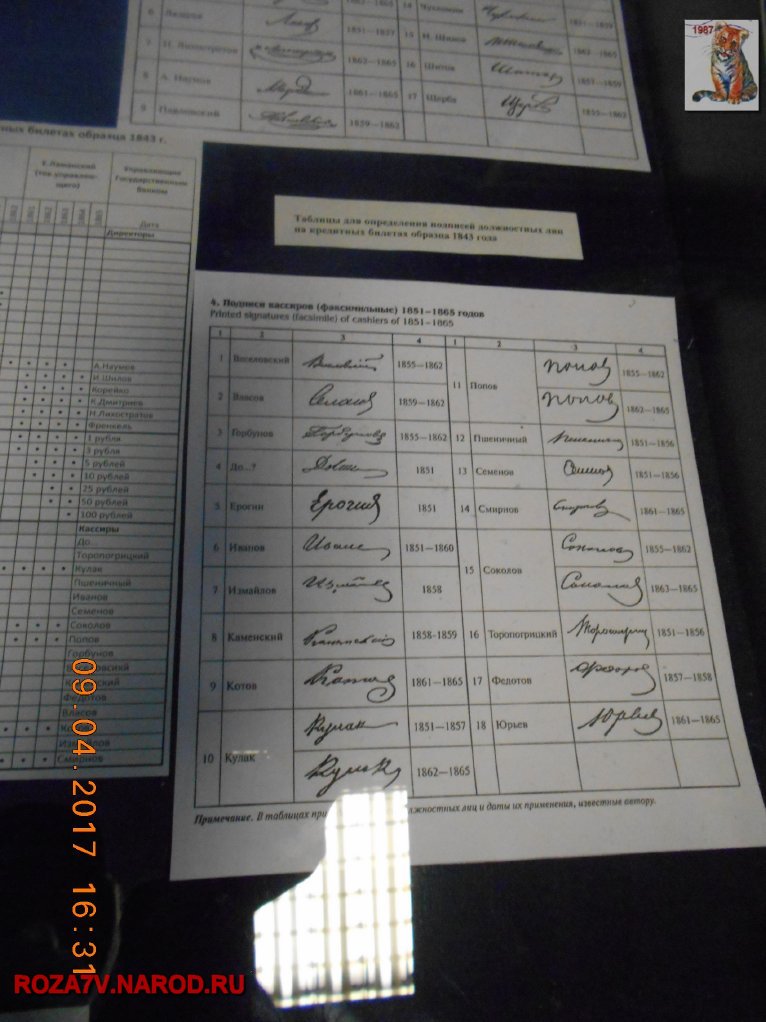 1987
6 Лазарев 1851—1857
7 Н. Лихостратов 1862—1865
8 А. Наумов 1861—1865
9 Павловский 1859—1862
14 Чухломин 1851—1859
15 И. Шилов 1862—1865
16 Шитов 1857—1859
17 Щерба 1855—1862
ных билетах образца 1843 г.
Е.Ламанский
(тов.управляю-
щего)
Управляющие
Государственным
Банком
Дата
Директоры
А.Наумов
И.Шилов
Корейко
К.Дмитриев
Н.Лихостратов
Френкель
1 рубля
3 рубля
5 рублей
10 рублей
25 рублей
50 рублей
100 рублей
Кассиры
До...
Торопогрицкий
Кулак
Пшеничный
Иванов
Семенов
Соколов
Попов
Горбунов
Федотов
Власов
Измайлов
Смирнов
Таблицы для определения подписей должностных лиц
на кредитных билетах образца 1843 года
4. Подписи кассиров (факсимильные) 1851—1865 годов
Printed signatures (facsimile) of cashiers of 1851—1865
1 2 3 4 1 2 3 4
1 Веселовский 1855—1862
2 Власов 1859—1862
3 Горбунов 1855—1862
4 До...? 1851
5 Ерогин Ерогин 1851
6 Иванов 1851—1860
7 Измайлов 1858
8 Каменский 1858-1859
9 Котов 1861—1865
10 Кулак Кулак 1851—1857
Кулак 1862—1865
11 Попов Попов 1855—1862
Попов 1862—1865
12 Пшеничный 1851—1856
13 Семенов 1851—1856
14 Смирнов 1861—1865
15 Соколов Соколов 1855—1862
Соколов 1863—1865
16 Торопогрицкий 1851—1856
17 Федотов 1857—1858
18 Юрьев Юрьев 1861—1865
Примечание. В таблицах при должностных лиц и даты их применения, известные автору.
09.04.2017 16:31
ROZA7V.NAROD.RU